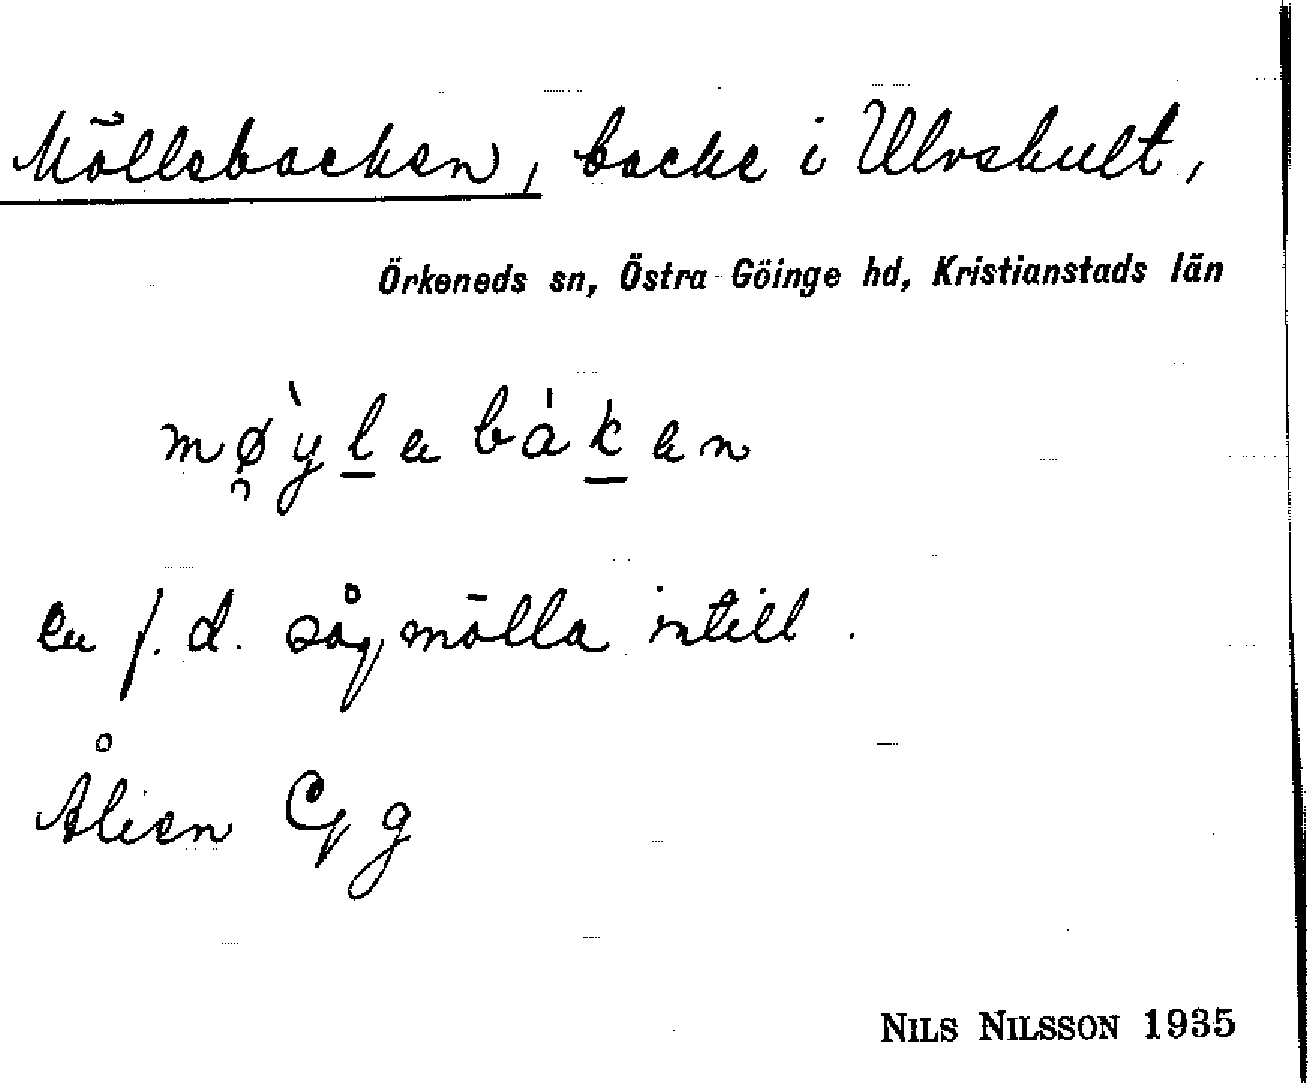 Möllebacken, backe i Ulvshult,
Örkeneds sn, Östra Göinge hd, Kristianstads län
mø̯̀yl̲ebák̲en
en f. d. sågmölla intill.